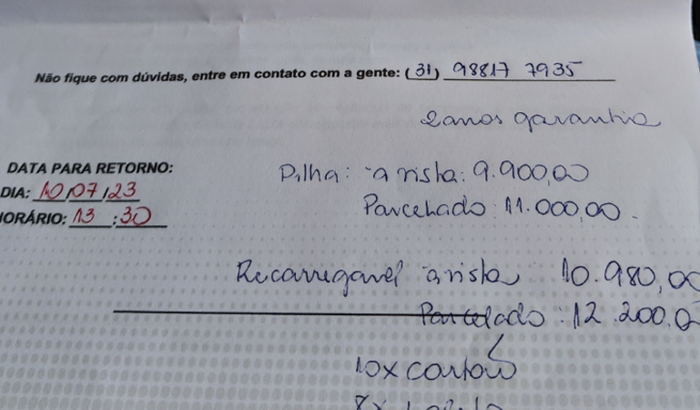 Não fique com dúvidas, entre em contato com a gente: (31) 98817 7935
2 anos garantia
DATA PARA RETORNO:
DIA: 10/07/23
HORÁRIO: 13:30
Pilha: a vista: 9.900,00
Parcelado: 11.000,00.
Recarregavel a vista 10.980,00
Parcelado: 12.200,0
10x cartão
8x